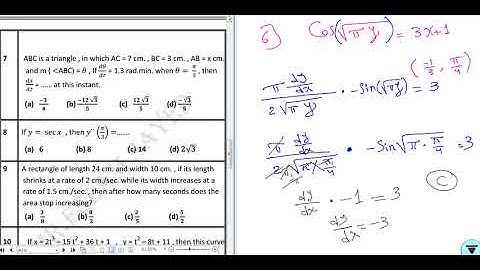 7 ABC is a triangle , in which AC = 7 cm. , BC = 3 cm. , AB = x cm.
and m ( <ABC) = θ , If dθ/dt = 1.3 rad.min. when θ = π/3 , then
dx/dt = ...... at this instant.
(a) -3/4 (b) -12√3/5 (c) 12√3/5 (d) -√3/4
8 If y = sec x , then y`` (π/3) =......
(a) 6 (b) 8 (c) 14 (d) 2√3
9 A rectangle of length 24 cm. and width 10 cm. , if its length
shrinks at a rate of 2 cm./sec. while its width increases at a
rate of 1.5 cm./sec. , then after how many seconds does the
area stop increasing?
(a) 3/8 (b) 8/3 (c) 2/5 (d) 5/2
10 If x = 2t³ – 15 t² + 36 t + 1 , y = t² – 8t + 11 , then this curve
6] Cos(√π y) = 3x+1
(-1/3, π/4)
π dy/dx / 2√π y · -sin(√πy) = 3
π dy/dx / 2√π × π/4 · -Sin√π · π/4 = 3
dy/dx · -1 = 3
C
dy/dx = -3